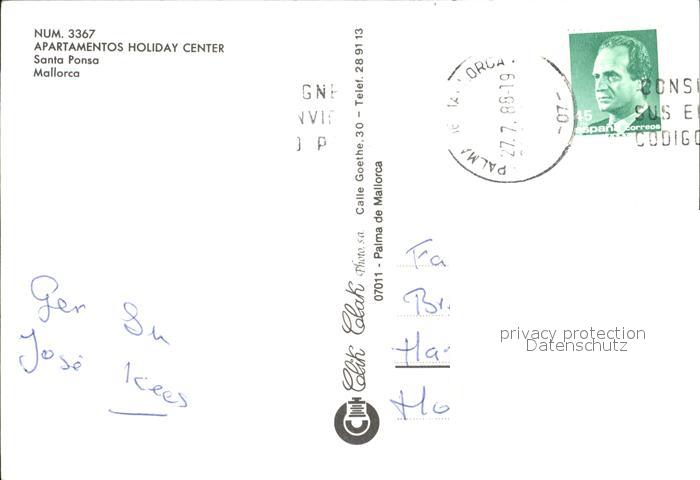 NUM. 3367
APARTAMENTOS HOLIDAY CENTER
Santa Ponsa
Mallorca
Clik Clak Photo, s.a. Calle Goethe, 30 - Telef. 28 91 13
07011 - Palma de Mallorca
GNE
NVIE
O P
PALMA DE MALLORCA
27.7.88-19
-07-
45
españa correos
CONSI
SUS E
CODIGO
Ger Su
José Kees
Fa
Br
Ha
Ho
privacy protection
Datenschutz